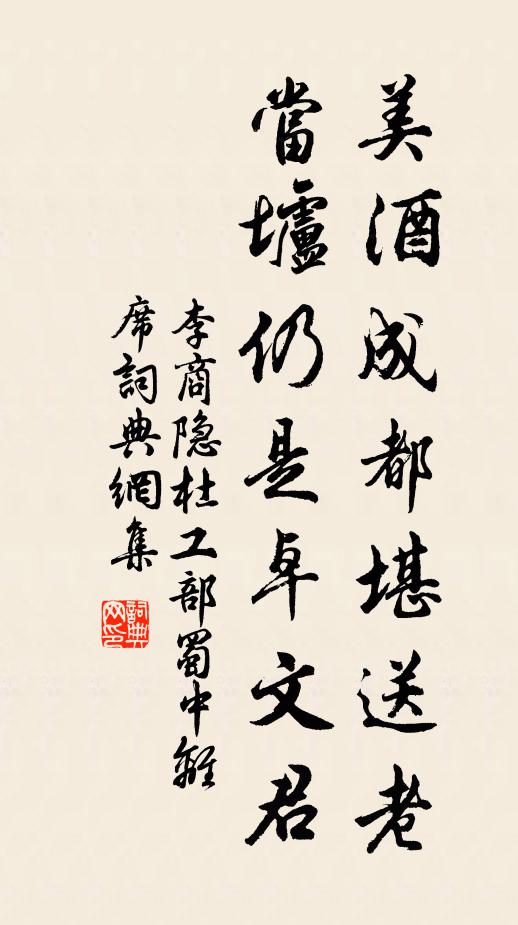 美酒成都堪送老
當壚仍是卓文君
李商隐杜工部蜀中離
席詞典網集
詞典网印